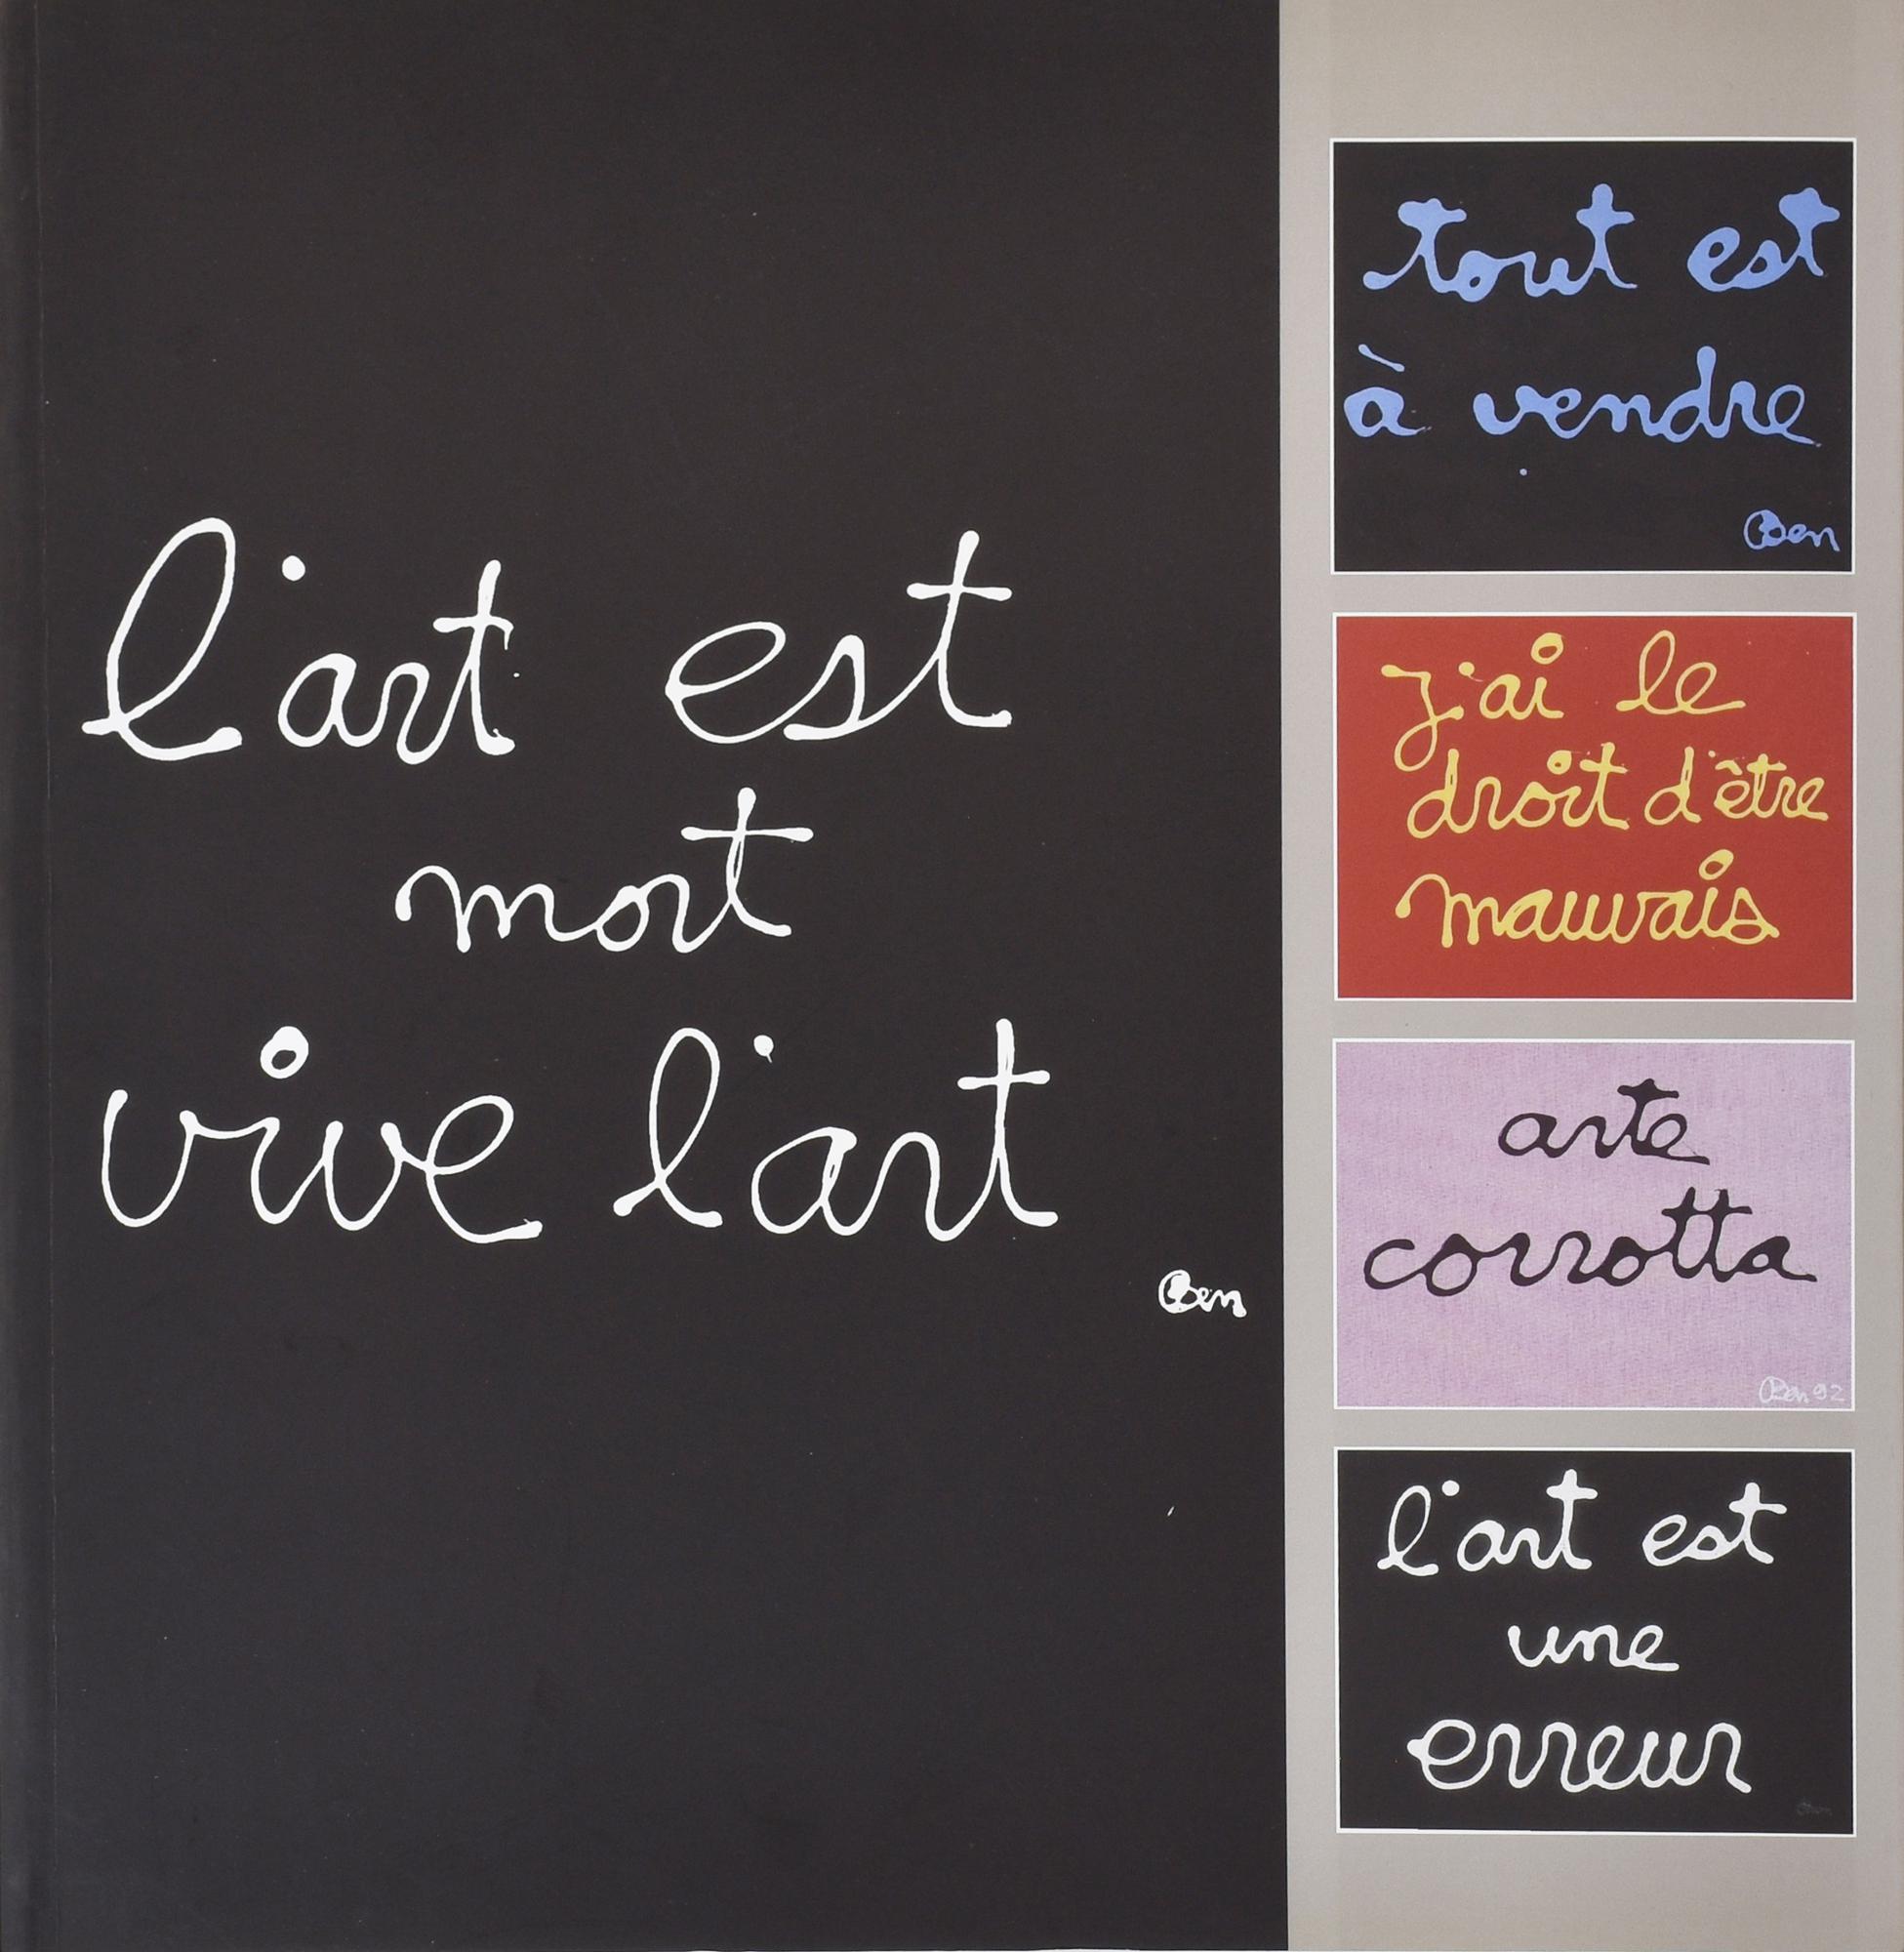 l'art est
mort
vive l'art
Ben
tout est
à vendre
Ben
j'ai le
droit d'être
mauvais
arte
corrotta
Ben 92
l'art est
une
erreur